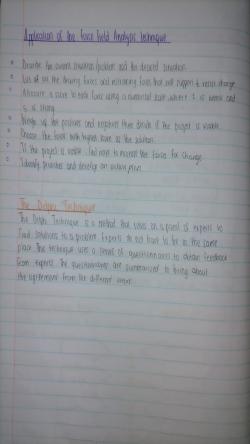 Application of the Force Field Analysis technique
Describe the current situation/problem and the desired situation
List all the driving forces and restraining forces that will support & resist change
Allocate a score to each force using a numerical scale where 1 is weak and
5 is strong
Weigh up the positives and negatives then decide if the project is viable
Choose the force with highest score as the solution
If the project is viable, find ways to increase the force for change
Identify priorities and develop an action plan
The Delphi Technique
The Delphi Technique is a method that relies on a panel of experts to
find solutions to a problem. Experts do not have to be in the same
place. This technique uses a series of questionnaires to obtain feedback
from experts. The questionnaires are summarized to bring about
the agreement from the different